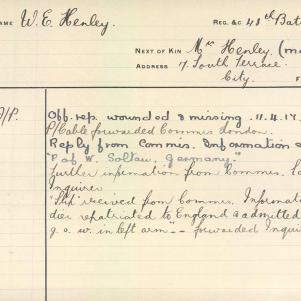 NAME W. E. Henley. REG. &C 48th Bat
NEXT OF KIN Mrs Henley. (mo
ADDRESS 7. South Terrace.
City. F
Off. rep. wounded & missing. 11.4.17.
P/Cable forwarded Commrs London.
Reply from Commis. Information
"P. of W. Soltau, Germany."
Further information from Commrs. Lo
Inquirer
"Slip" received from Comms. Informati
dier repatriated to England & admitted
g. s. w. in left arm" - forwarded Inqui